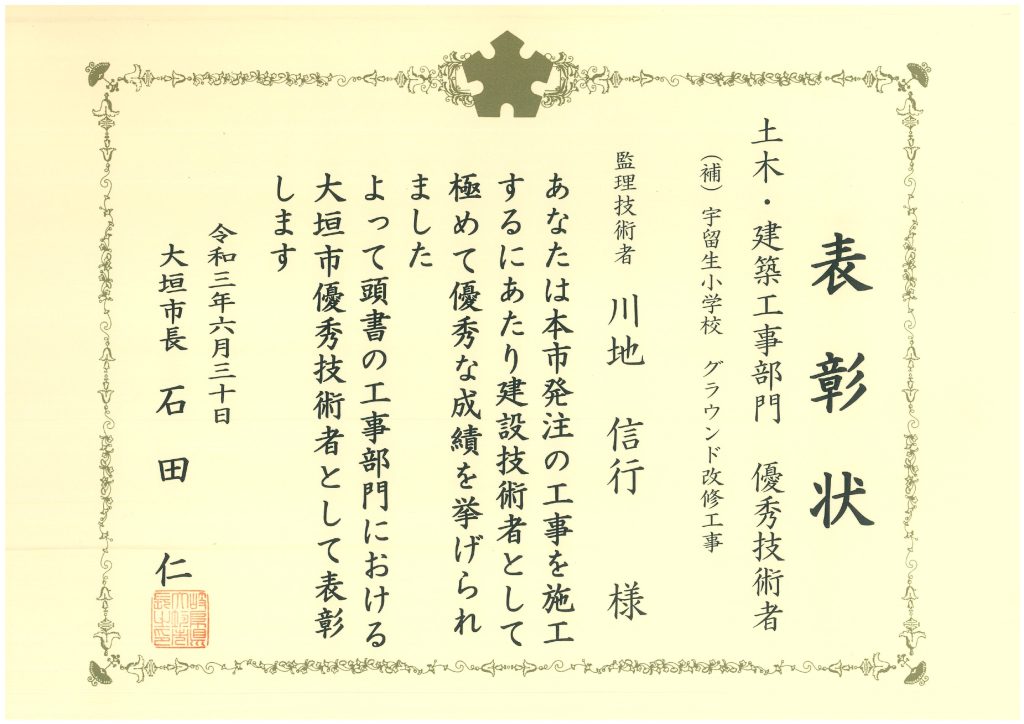 表彰状
土木・建築工事部門　優秀技術者
（補）宇留生小学校　グラウンド改修工事
監理技術者　川地　信行　様
あなたは本市発注の工事を施工
するにあたり建設技術者として
極めて優秀な成績を挙げられ
ました
よって頭書の工事部門における
大垣市優秀技術者として表彰
します
令和三年六月三十日
大垣市長　石田　仁